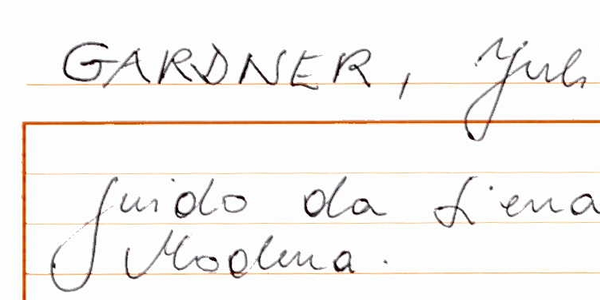 GARDNER, Jul
Guido da Siena
Modena.